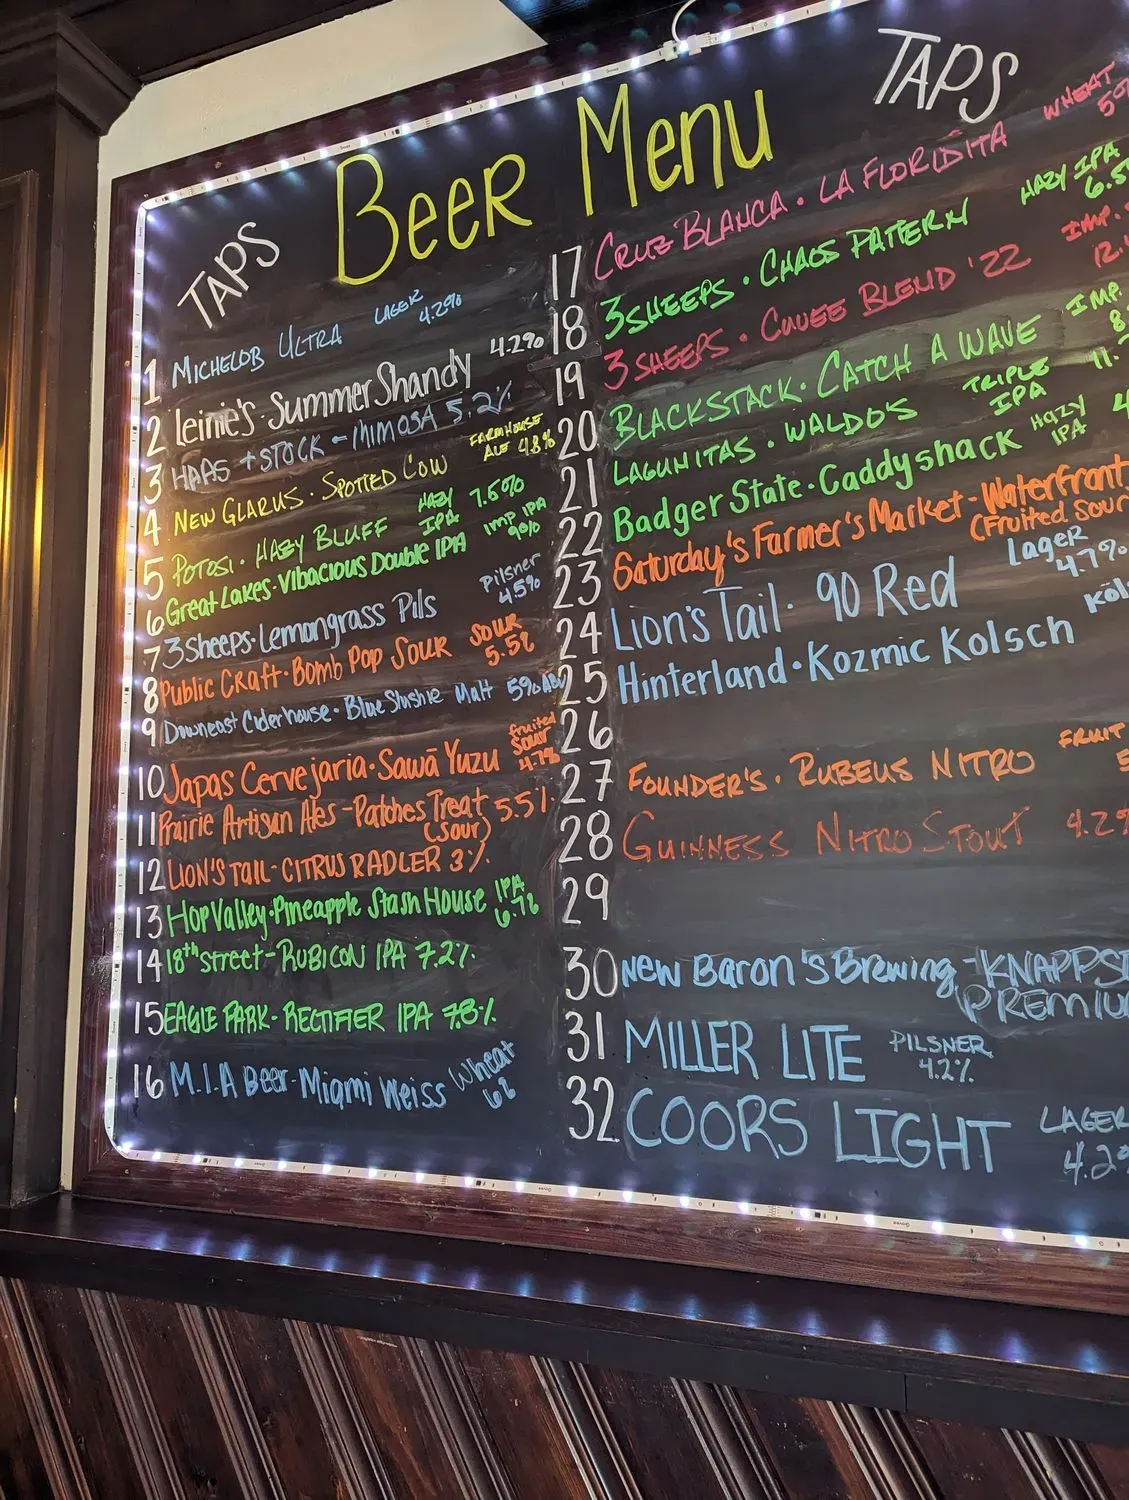 BEER MENU
TAPS
1 MICHELOB ULTRA LAGER 4.2%
2 Leinie's · Summer Shandy 4.2%
3 HAAS + STOCK - MIMOSA 5.2%
4 NEW GLARUS · SPOTTED COW FARMHOUSE ALE 4.8%
5 POTOSI · HAZY BLUFF HAZY IPA 7.5%
6 Great Lakes · Vibacious Double IPA IMP IPA 9%
7 3 Sheeps · Lemongrass Pils Pilsner 4.5%
8 Public Craft · Bomb Pop Sour SOUR 5.5%
9 Downeast Ciderhouse · Blue Slushie Malt 5% ABV
10 Japas Cervejaria · Sawā Yuzu fruited SOUR 4.7%
11 Prairie Artisan Ales - Patches Treat 5.5%
(Sour)
12 LION'S TAIL - CITRUS RADLER 3%
13 Hop Valley · Pineapple Stash House IPA 6.7%
14 18th Street - RUBICON IPA 7.2%
15 EAGLE PARK - RECTIFIER IPA 7.8%
16 M.I.A Beer · Miami Weiss Wheat 6%
TAPS
17 CRUZ BLANCA · LA FLORIDITA WHEAT
18 3 SHEEPS · CHAOS PATTERN HAZY IPA
19 3 SHEEPS · CUVEE BLEND '22 IMP.
20 BLACKSTACK · CATCH A WAVE IMP.
21 LAGUNITAS · WALDO'S TRIPLE IPA
22 Badger State · Caddyshack Hazy IPA
23 Saturday's Farmer's Market - Waterfront
(Fruited Sour
24 Lion's Tail · 90 Red Lager 4.7%
25 Hinterland · Kozmic Kolsch
26
27 FOUNDER'S · RUBEUS NITRO FRUIT
28 GUINNESS NITRO STOUT 4.2%
29
30 New Baron's Brewing -
31 MILLER LITE PILSNER 4.2%
32 COORS LIGHT LAGER